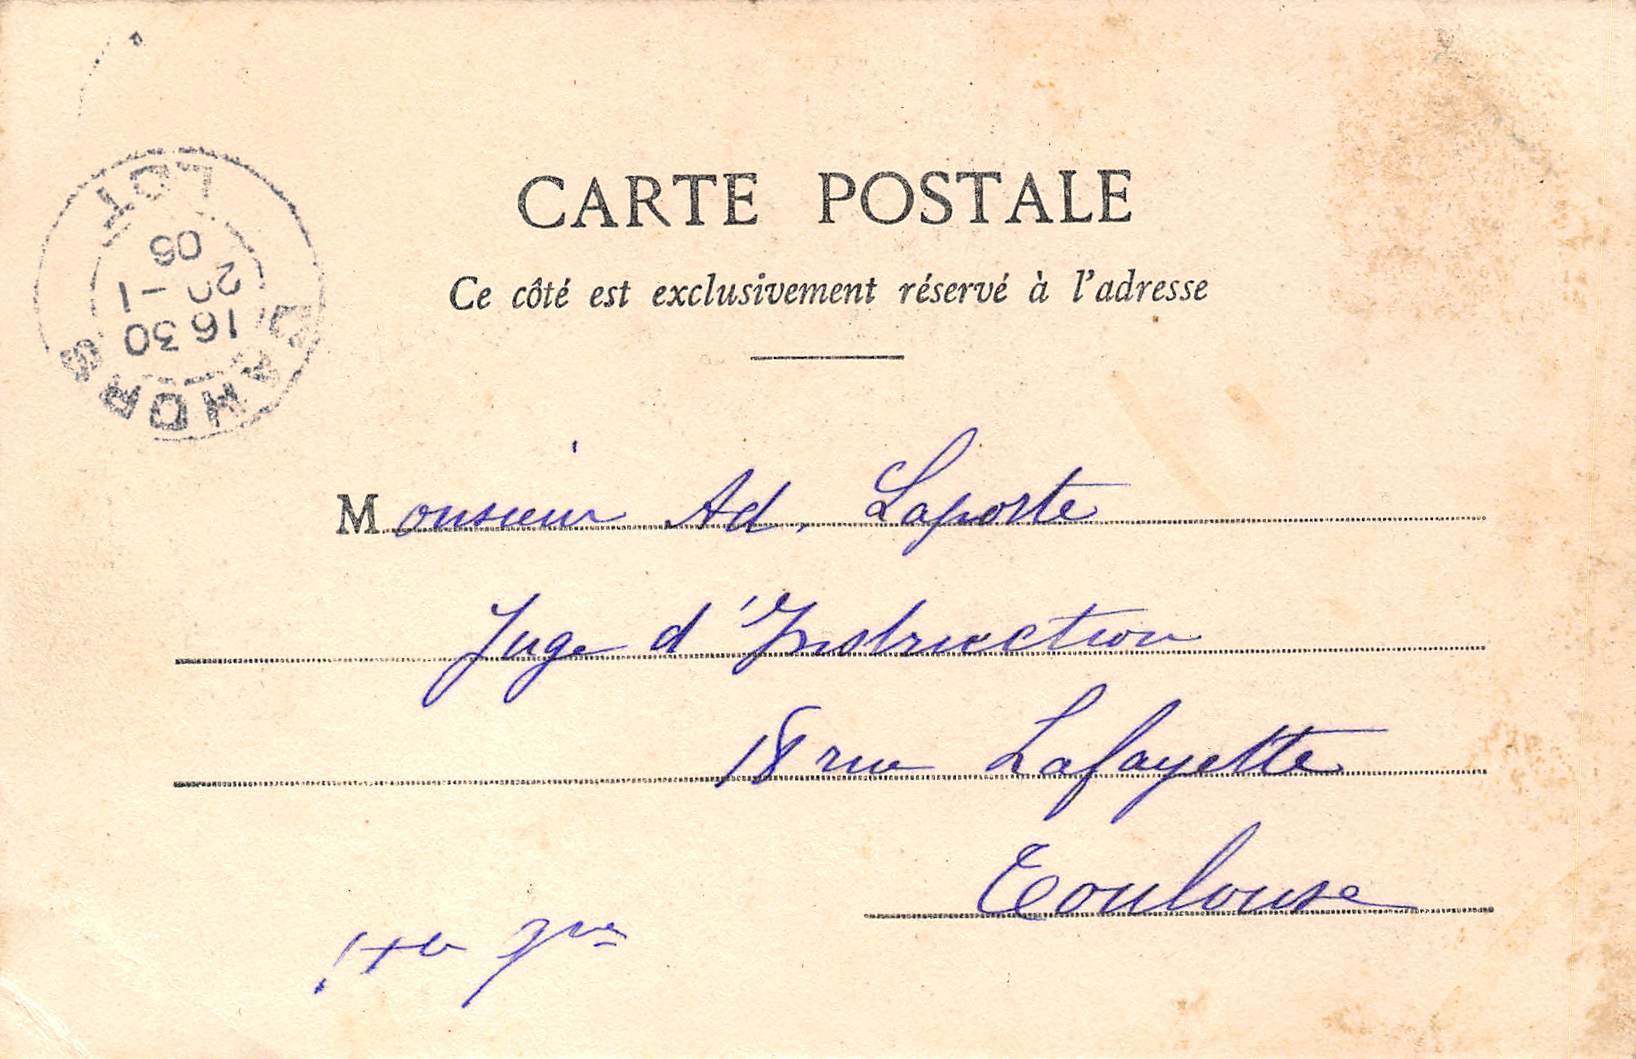 CARTE POSTALE
Ce côté est exclusivement réservé à l'adresse
CAHORS
16 30
20 -1
06
LOT
Monsieur Ad. Laporte
Juge d'Instruction
18 rue Lafayette
Toulouse
Hte Gne